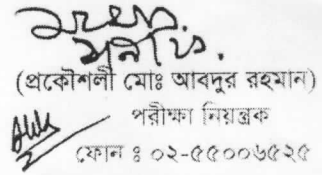 (প্রকৌশলী মোঃ আবদুর রহমান)
পরীক্ষা নিয়ন্ত্রক
ফোন ঃ ০২-৫৫০০৬৫২৫